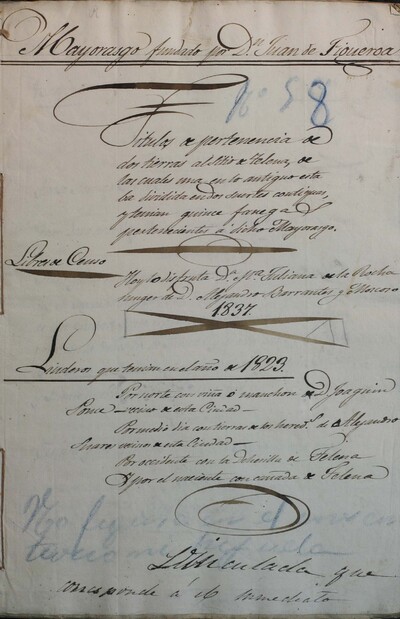 Mayorasgo fundado por Dn Juan de Figueroa
Nº 58
Titulos de pertenencia de
dos tierras al sitio de Telena, de
las cuales una en lo antiguo esta
ba dividida en dos suertes contiguas,
y tenian quince fanegas
pertenecientes á dicho Mayorasgo.
Libres de Censo
Hoy lo disfruta Dª. Mª Juliana de la Rocha
muger de D. Alejandro Barrantes y Moscoso
1837.
Linderos que tenian en el año de 1823.
Por norte con viña é manchon de D. Joaquin
vecino de esta Ciudad
Por medio dia con tierras de los hered.s de Alejandro
Suares vecino de esta Ciudad
Por occidente con la dehesilla de Telena
Y por el naciente con cañada de Telena
No
que
corresponde á el inmediato